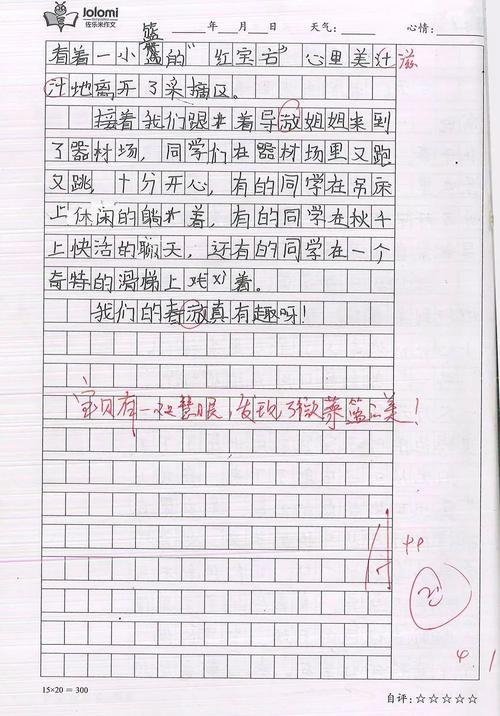 lolomi
佐乐米作文
年 月 日 天气: 心情:
篮
看着一小篮的“红宝石”心里美汁 滋
汁地离开了采摘区。
接着我们跟着导游姐姐来到
了器材场,同学们在器材场里又跑
又跳,十分开心,有的同学在吊床
上休闲的躺着,有的同学在秋千
上快活的聊天,还有的同学在一个
奇特的滑梯上戏着。
我们的春游真有趣呀!
宝贝有一双慧眼,发现了美!
优
4.1
15×20=300
自评:☆☆☆☆☆